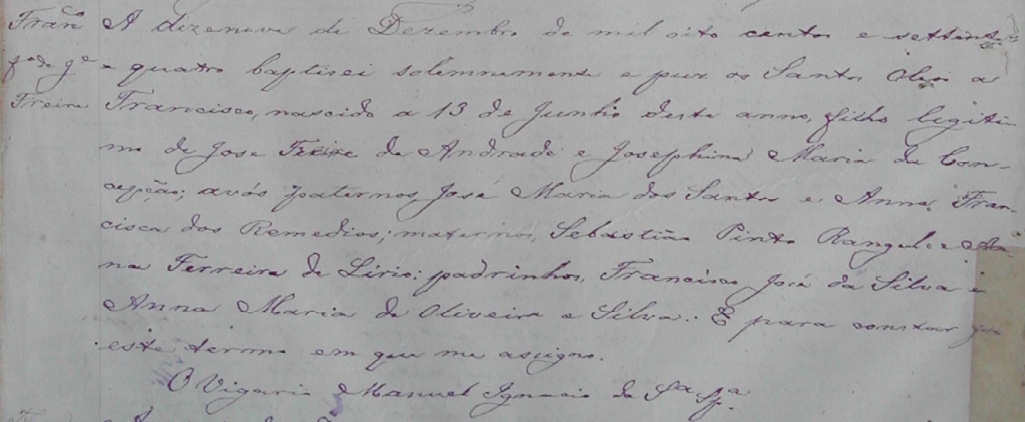 Franco A dizenove de Dezembro de mil oito centos e settenta
fo de Je e quatro baptisei solemnemente e puz os Santos Oleos a
Freire Francisco, nascido a 13 de Junho deste anno, filho legiti-
mo de José Freire de Andrade e Josephina Maria da Con-
cepção; avós paternos José Maria dos Santos e Anna Fran-
cisca dos Remedios; maternos, Sebastião Pinto Rangel e An-
na Ferreira de Lirio: padrinhos, Francisco José da Silva e
Anna Maria de Oliveira e Silva. E para constar fiz
este termo em que me assigno.
O Vigario Manuel Ignacio da Sa Sa.